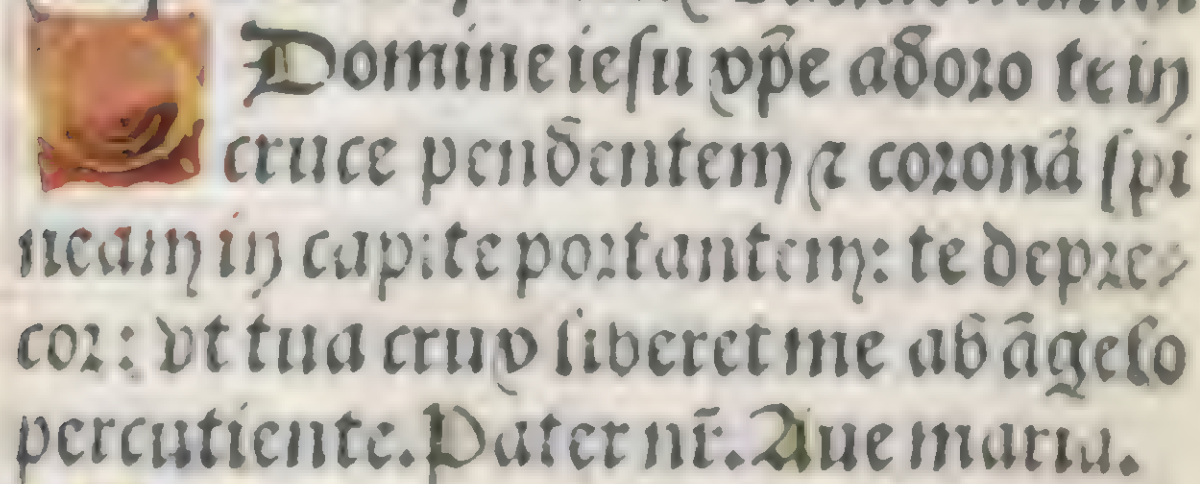 O Domine iesu xp̄e adoro te in
cruce pendentem ⁊ coronā spi
neam in capite portantem: te depre-
cor: vt tua crux liberet me ab āgelo
percutiente. Pater nr̄. Aue maria.